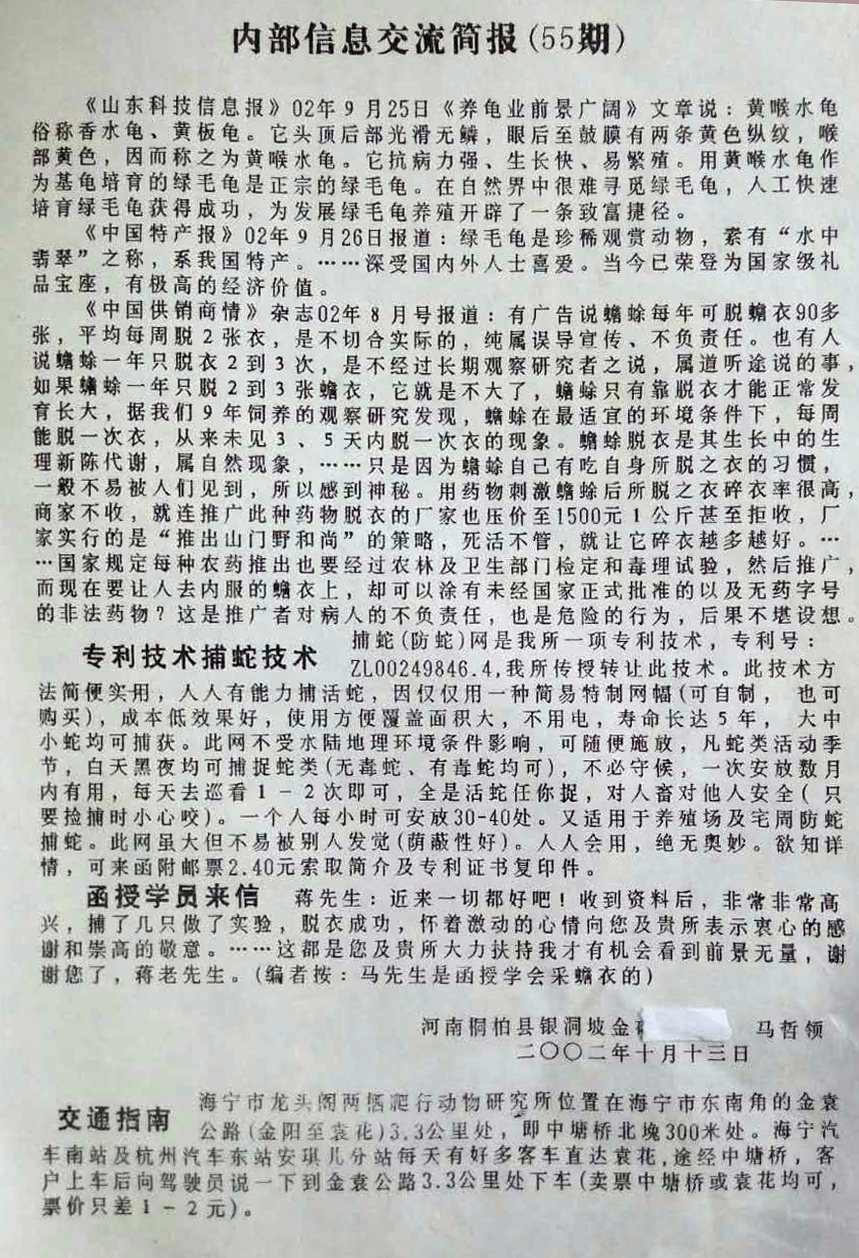 内部信息交流简报(55期)
《山东科技信息报》02年9月25日《养龟业前景广阔》文章说：黄喉水龟
俗称香水龟、黄板龟。它头顶后部光滑无鳞，眼后至鼓膜有两条黄色纵纹，喉
部黄色，因而称之为黄喉水龟。它抗病力强、生长快、易繁殖。用黄喉水龟作
为基龟培育的绿毛龟是正宗的绿毛龟。在自然界中很难寻觅绿毛龟，人工快速
培育绿毛龟获得成功，为发展绿毛龟养殖开辟了一条致富捷径。
《中国特产报》02年9月26日报道：绿毛龟是珍稀观赏动物，素有“水中
翡翠”之称，系我国特产。……深受国内外人士喜爱。当今已荣登为国家级礼
品宝座，有极高的经济价值。
《中国供销商情》杂志02年8月号报道：有广告说蟾蜍每年可脱蟾衣90多
张，平均每周脱2张衣，是不切合实际的，纯属误导宣传、不负责任。也有人
说蟾蜍一年只脱衣2到3次，是不经过长期观察研究者之说，属道听途说的事，
如果蟾蜍一年只脱2到3张蟾衣，它就是不大了，蟾蜍只有靠脱衣才能正常发
育长大，据我们9年饲养的观察研究发现，蟾蜍在最适宜的环境条件下，每周
能脱一次衣，从来未见3、5天内脱一次衣的现象。蟾蜍脱衣是其生长中的生
理新陈代谢，属自然现象，……只是因为蟾蜍自己有吃自身所脱之衣的习惯，
一般不易被人们见到，所以感到神秘。用药物刺激蟾蜍后所脱之衣碎衣率很高，
商家不收，就连推广此种药物脱衣的厂家也压价至1500元1公斤甚至拒收，厂
家实行的是“推出山门野和尚”的策略，死活不管，就让它碎衣越多越好。…
…国家规定每种农药推出也要经过农林及卫生部门检定和毒理试验，然后推广，
而现在要让人去内服的蟾衣上，却可以涂有未经国家正式批准的以及无药字号
的非法药物？这是推广者对病人的不负责任，也是危险的行为，后果不堪设想。
专利技术捕蛇技术
捕蛇(防蛇)网是我所一项专利技术，专利号：
ZL00249846.4,我所传授转让此技术。此技术方
法简便实用，人人有能力捕活蛇，因仅仅用一种简易特制网幅(可自制，也可
购买)，成本低效果好，使用方便覆盖面积大，不用电，寿命长达5年，大中
小蛇均可捕获。此网不受水陆地理环境条件影响，可随便施放，凡蛇类活动季
节，白天黑夜均可捕捉蛇类(无毒蛇、有毒蛇均可)，不必守候，一次安放数月
内有用，每天去巡看1-2次即可，全是活蛇任你捉，对人畜对他人安全(只
要捡捕时小心咬)。一个人每小时可安放30-40处。又适用于养殖场及宅周防蛇
捕蛇。此网虽大但不易被别人发觉(荫蔽性好)。人人会用，绝无奥妙。欲知详
情，可来函附邮票2.40元索取简介及专利证书复印件。
函授学员来信 蒋先生：近来一切都好吧！收到资料后，非常非常高
兴，捕了几只做了实验，脱衣成功，怀着激动的心情向您及贵所表示衷心的感
谢和崇高的敬意。……这都是您及贵所大力扶持我才有机会看到前景无量，谢
谢您了，蒋老先生。(编者按：马先生是函授学会采蟾衣的)
河南桐柏县银洞坡金 马哲领
二〇〇二年十月十三日
交通指南
海宁市龙头阁两栖爬行动物研究所位置在海宁市东南角的金袁
公路(金阳至袁花)3.3公里处，即中塘桥北堍300米处。海宁汽
车南站及杭州汽车东站安琪儿分站每天有好多客车直达袁花,途经中塘桥，客
户上车后向驾驶员说一下到金袁公路3.3公里处下车(卖票中塘桥或袁花均可，
票价只差1-2元)。